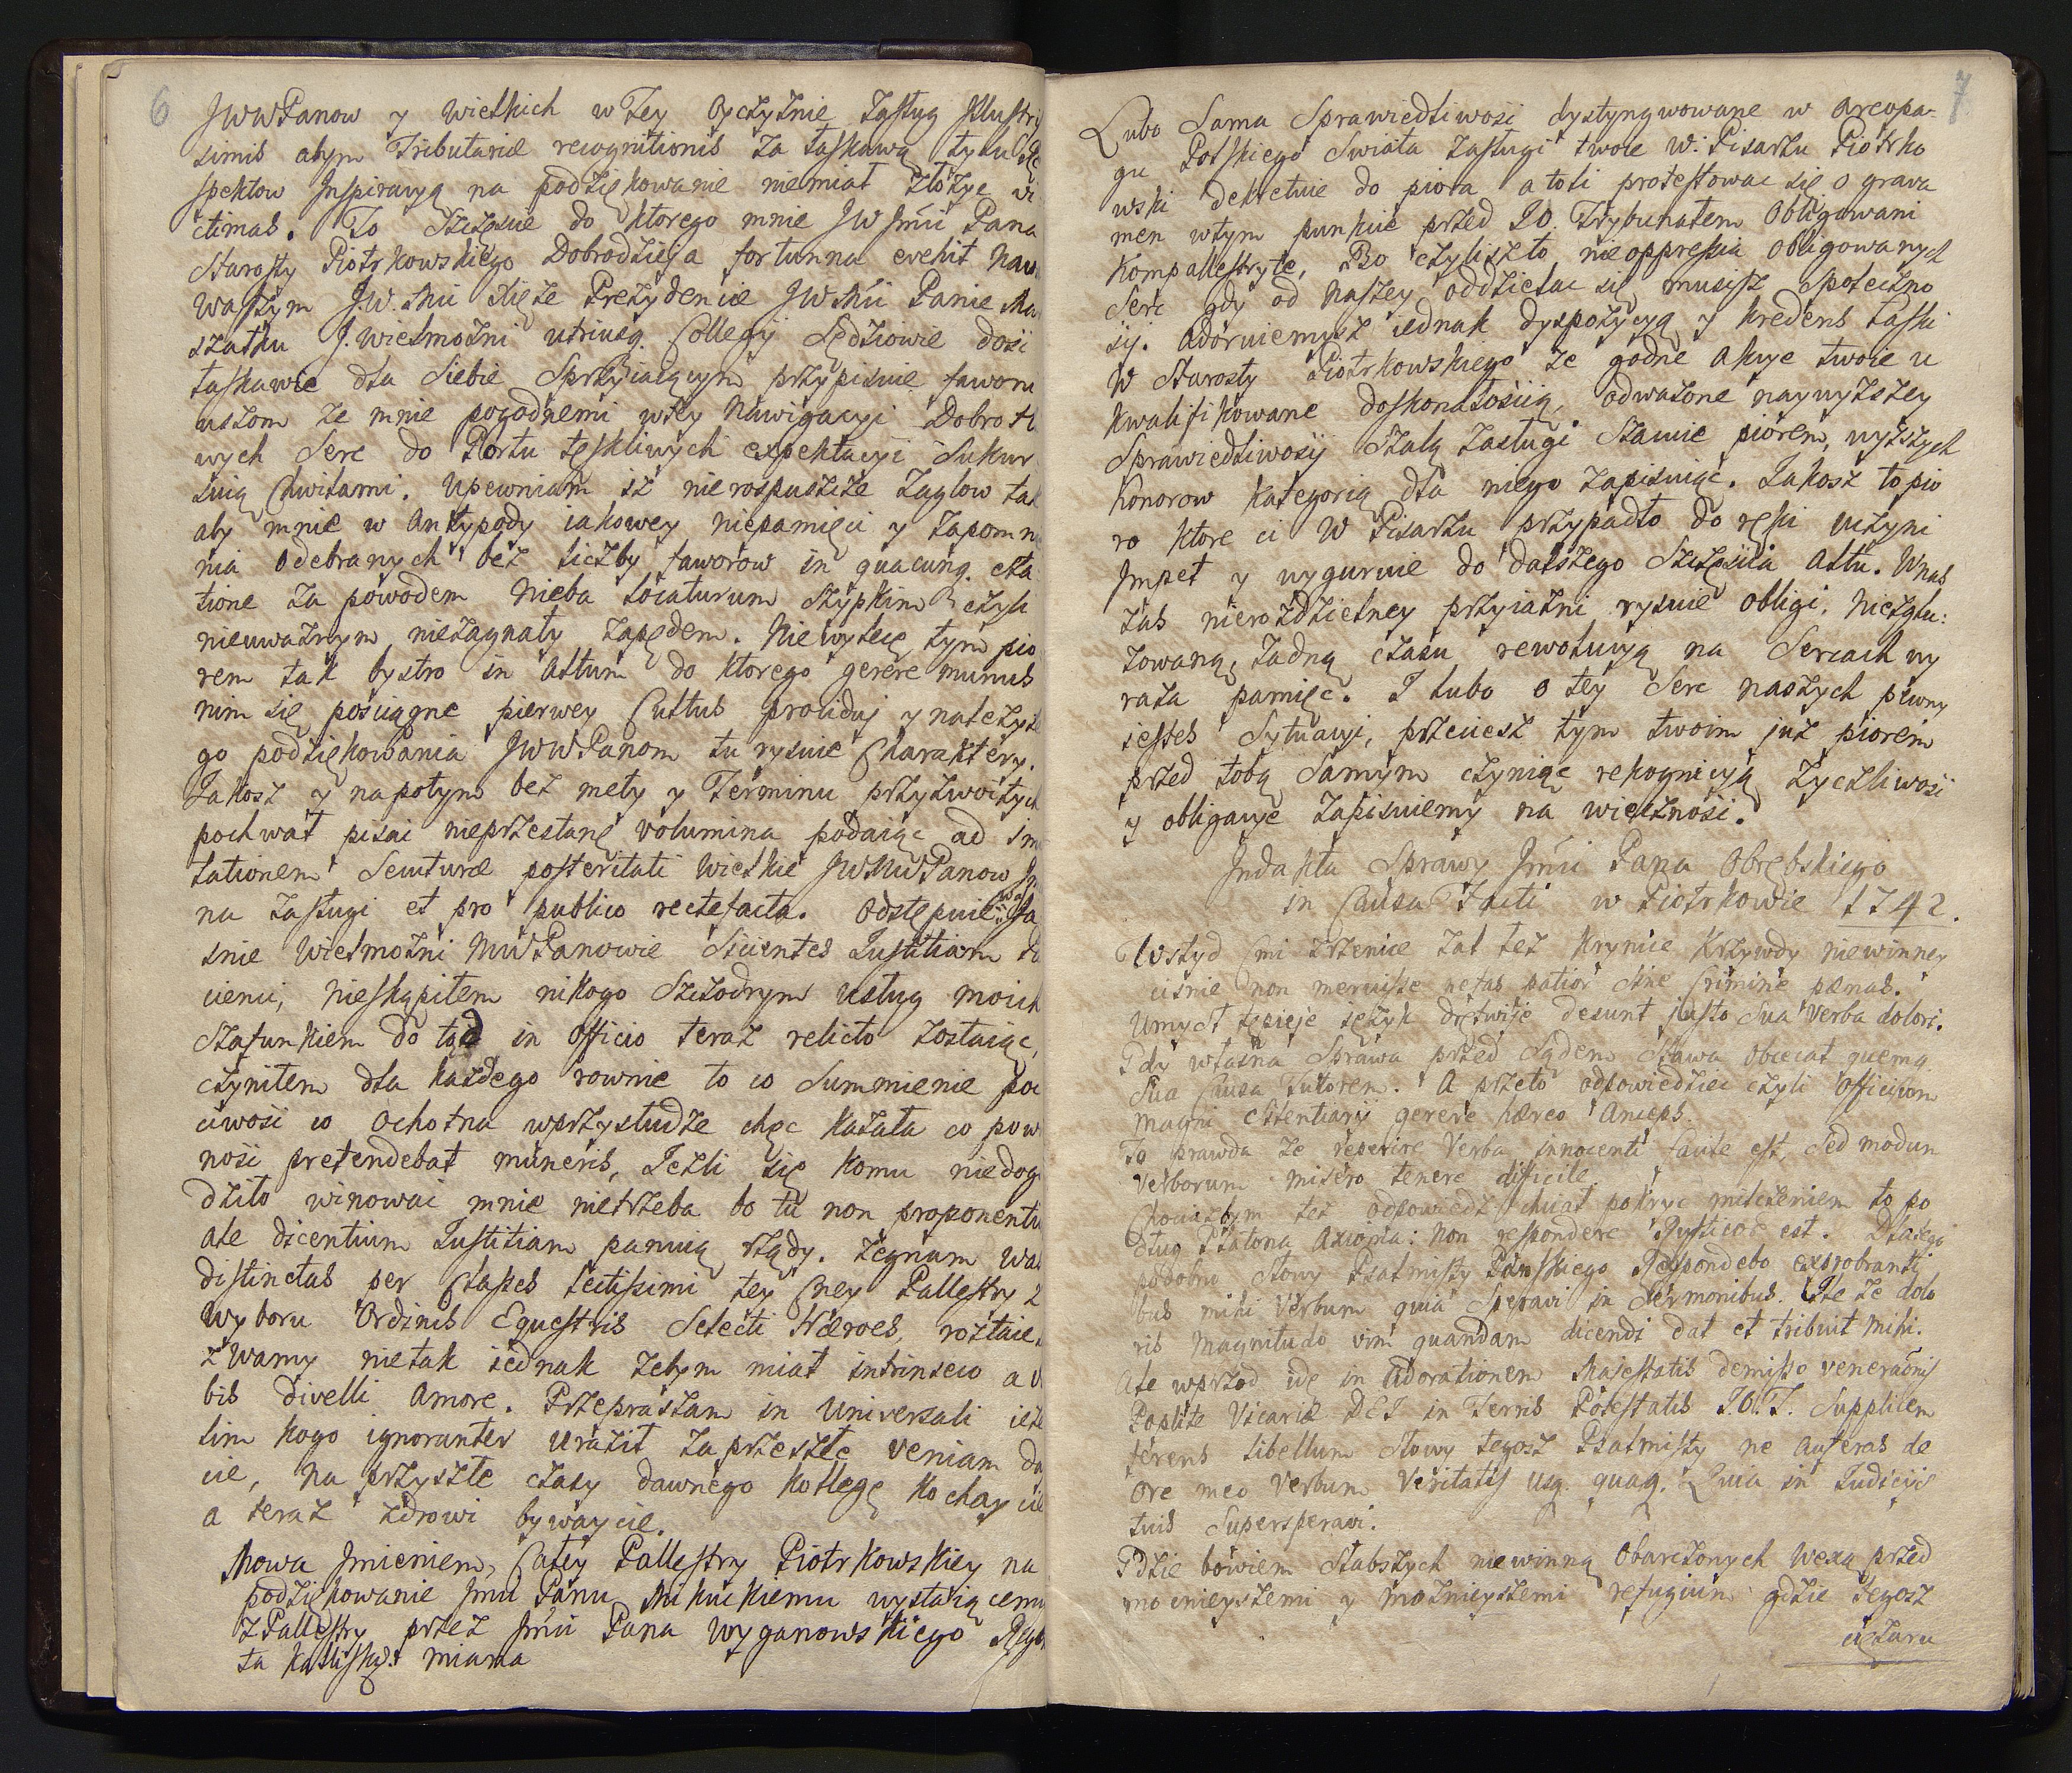 6
JWWPanow y wielkich w Tey Oyczyznie Zasług Jllustris
simis abym Tributariæ recognitionis za łaskawą tylu Re
spektow Jnspiracyą na podziękowanie niemiał złożyc vi
ctimas. To szczęscie do ktorego mnie JW Jmci Pana
Starosty Piotrkowskiego Dobrodzieja fortunna evehit
Waszym J.W.Mci Xięże Prezydencie JWMci Panie Mar
szałku J.Wielmożni utriusq. Collegij Sędziowie dosc
łaskawie dla siebie sprzyiaiącym przypisuię fawoni
uszom że mnie pogodnemi wtey Nawigacyi Dobrotli
wych Serc do Portu tęskliwych expektacyi sukur
suią Chwilami. Upewniam iż nierospuszcze żaglow tak
aby mnie w Antypody iakowey niepamięci y zapomnie
nia odebranych bez liczby faworow in quacunq. sta
tione za powodem Nieba locaturum szypkim czyli
nieuważnym niezagnały zapędem. Nie wylecę tym pio
rem tak bystro in altum do ktorego gerere munus
nim się posciągnę pierwey Cultus prouiduj y należyte
go podziękowania JWWPanom tu rysuię Charaktery.
Jakosz y napotym bez mety y Terminu przyzwoitych
pochwał pisac nieprzestanę volumina podaiąc ad imi
tationem secuturæ posteritati wielkie JWMWPanow
na zasługi et pro publico rectefacta. Odstępuię
snie Wielmożni MWPanowie sitientes Justitiam
cienci, nieskąpiłem nikogo szczodrym usług moich
szafunkiem do tąd in officio teraz relicto zostaiąc,
czyniłem dla każdego rownie to co summienie poc
ciwosc co ochotna wprzysłudze chęc kazała co pow
nosc pretendebat muneris, Jeżli się komu niedogo
dziło winowac mnie nietrzeba bo tu non proponentium
ale dicentium Justitiam panuią rządy. Żegnam was
distinctas per Classes lectissimi tey Cney Pallestry z
Wyboru Ordinis Equestris Selecti Heroes, rozstaię
z wamy nietak iednak żebym miał intrinseco a vo
bis divelli amore. Przepraszam in Universali ieże
lim kogo ignoranter uraził za przeszłe veniam day
cie, na przyszłe czasy dawnego kollegę kochaycie
a teraz zdrowi bywaycie.
Mowa Jmieniem Całey Pallestry Piotrkowskiey na
podziękowanie Jmci Panu Mikuckiemu wystąpiącemu
z Pallestry przez Jmci Pana Wyganowskiego
ta Kalisky. miana
7
Lubo Sama Sprawiedliwosc dystyngwowane w areopa-
gu Polskiego Swiata zasługi twoie W: Pisarzu Piotrko
wski dekretuie do piora atoli protestowac się o grava
men wtym punkcie przed JO. Trybunałem Obligowani
Kompallestryte, Bo czyliszto nieoppressia obligowanych
serc gdy od naszey oddzielac się musisz społeczno
scj. Adoruiemysz iednak dyspozycyą y kredens łaski
W Starosty Piotrkowskiego że godne Akcye twoie u
kwalifikowane doskonałoscią, odważone naywyższey
Sprawiedliwoscj szalą zasługi stawie piorem, wyższych
Honorow kategorią dla niego zapisuiąc. Jakosz to pio
ro ktore ci W Pisarzu przypadło do ręki uczyni
Jmpet y wyguruie do dalszego szczęscia Altū. Wnas
zas nierozdzielney przyiazni rysuie obligi. niezglu:
zowaną żadną czasu rewolucyą na sercach wy
raża pamięc. I lubo o tey serc naszych pewny
iestes sytuacyi, przeciesz tym twoim już piorem
przed tobą samym czyniąc rekognicyą życzliwosc
y obligacye zapisuiemy na wiecznosc.
Jndukta Sprawy Jmci Pana Obrębskiego
in Causa Facti w Piotrkowie 1742.
Wstyd Cmi zrzenice żal łez krynice krzywdy niewinney
cisnie non meruisse nefas patior sine Crimine pænas.
Umysł tępieje język drętwije desunt justo sua verba dolori.
Gdy własna sprawa przed sądem stawa obiecat quemq.
Sua Causa Tutorem. A przeto odpowiedziec czyli officium
magni silentiarij gerere hæreo anceps.
To prawda że reperire Verba innocenti facile est, sed modum
verborum misero tenere difficile.
Chociażbym też odpowiedz chciał pokryc milczeniem to po
dług Platona Axioma: Non respondere Rusticorū est. Dlatego
podobnu słowy Psalmisty Pańskiego Respondebo exprobranti
bus mihi verbum quia speravi in sermonibus. że dolo
ris magnitudo vim quandam dicendi dat et tribuit mihi.
Ale wprzod idę in adorationem Maiestatis demisso venerationis
Poplite Vicariæ DEJ in Terris Potestatis J.O.T. Supplicem
ferens libellum słowy tegosz Psalmisty ne auferas de
ore meo verbum veritatis usq. quaq. Quia in Judicijs
tuis supersperavi.
Gdzie bowiem słabszych niewinną obarczonych wexą przed
mocnieyszemi y możnieyszemi refugium gdzie tegosz
ciężaru